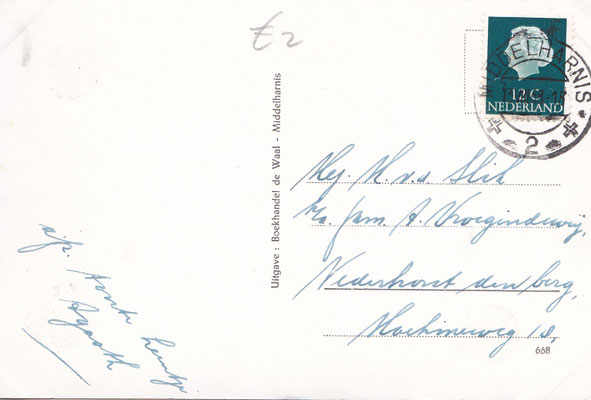 € 2
MIDDELHARNIS
2
12 C
NEDERLAND
Uitgave : Boekhandel de Waal - Middelharnis
Mej. K. v.d. Slik
p/a fam. A. Vroegindeweij,
Nederhorst den berg,
Machineweg 18,
668
a/z. tante Leuntje
Agaath